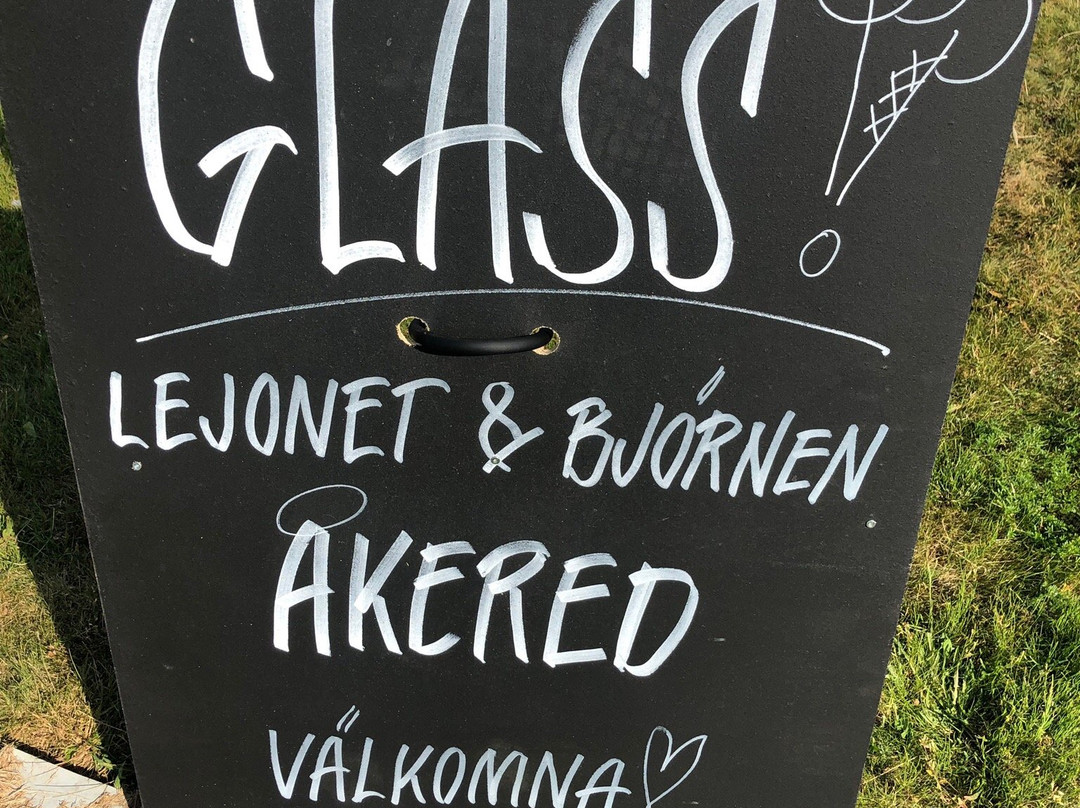 GLASS!
LEJONET & BJÖRNEN
ÅKERED
VÄLKOMNA